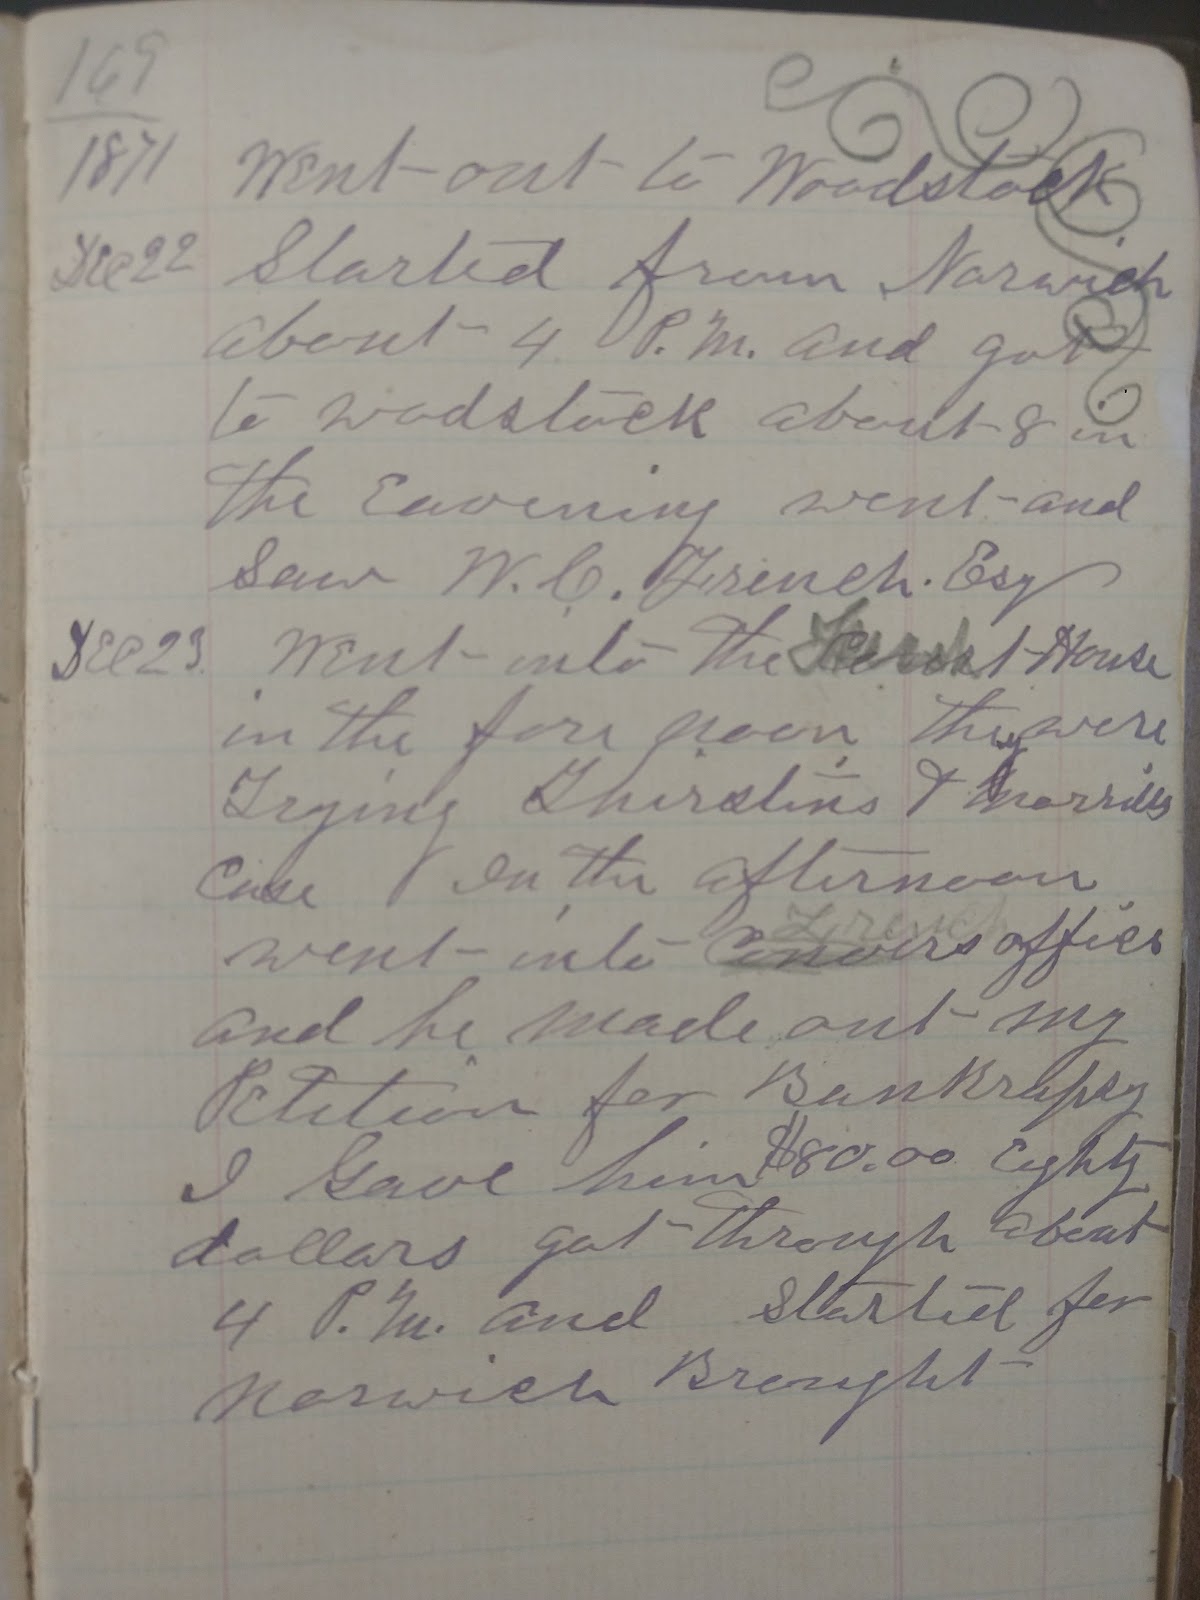 169
1871 Went out to Woodstock
Dec 22 Started from Norwich
about 4 P.M. and got
to wodstock about 8 in
the Eavening went and
Saw W. C. French. Esq
Dec 23. Went into the House
in the fore noon they were
Trying Thirstins & Morrills
Case In the afternoon
went into Convers office
French
and he made out my
Petition for Bankrupsy
I Gave him $80.00 Eighty
dollars got through about
4 P.M. and Started for
Norwich Brought